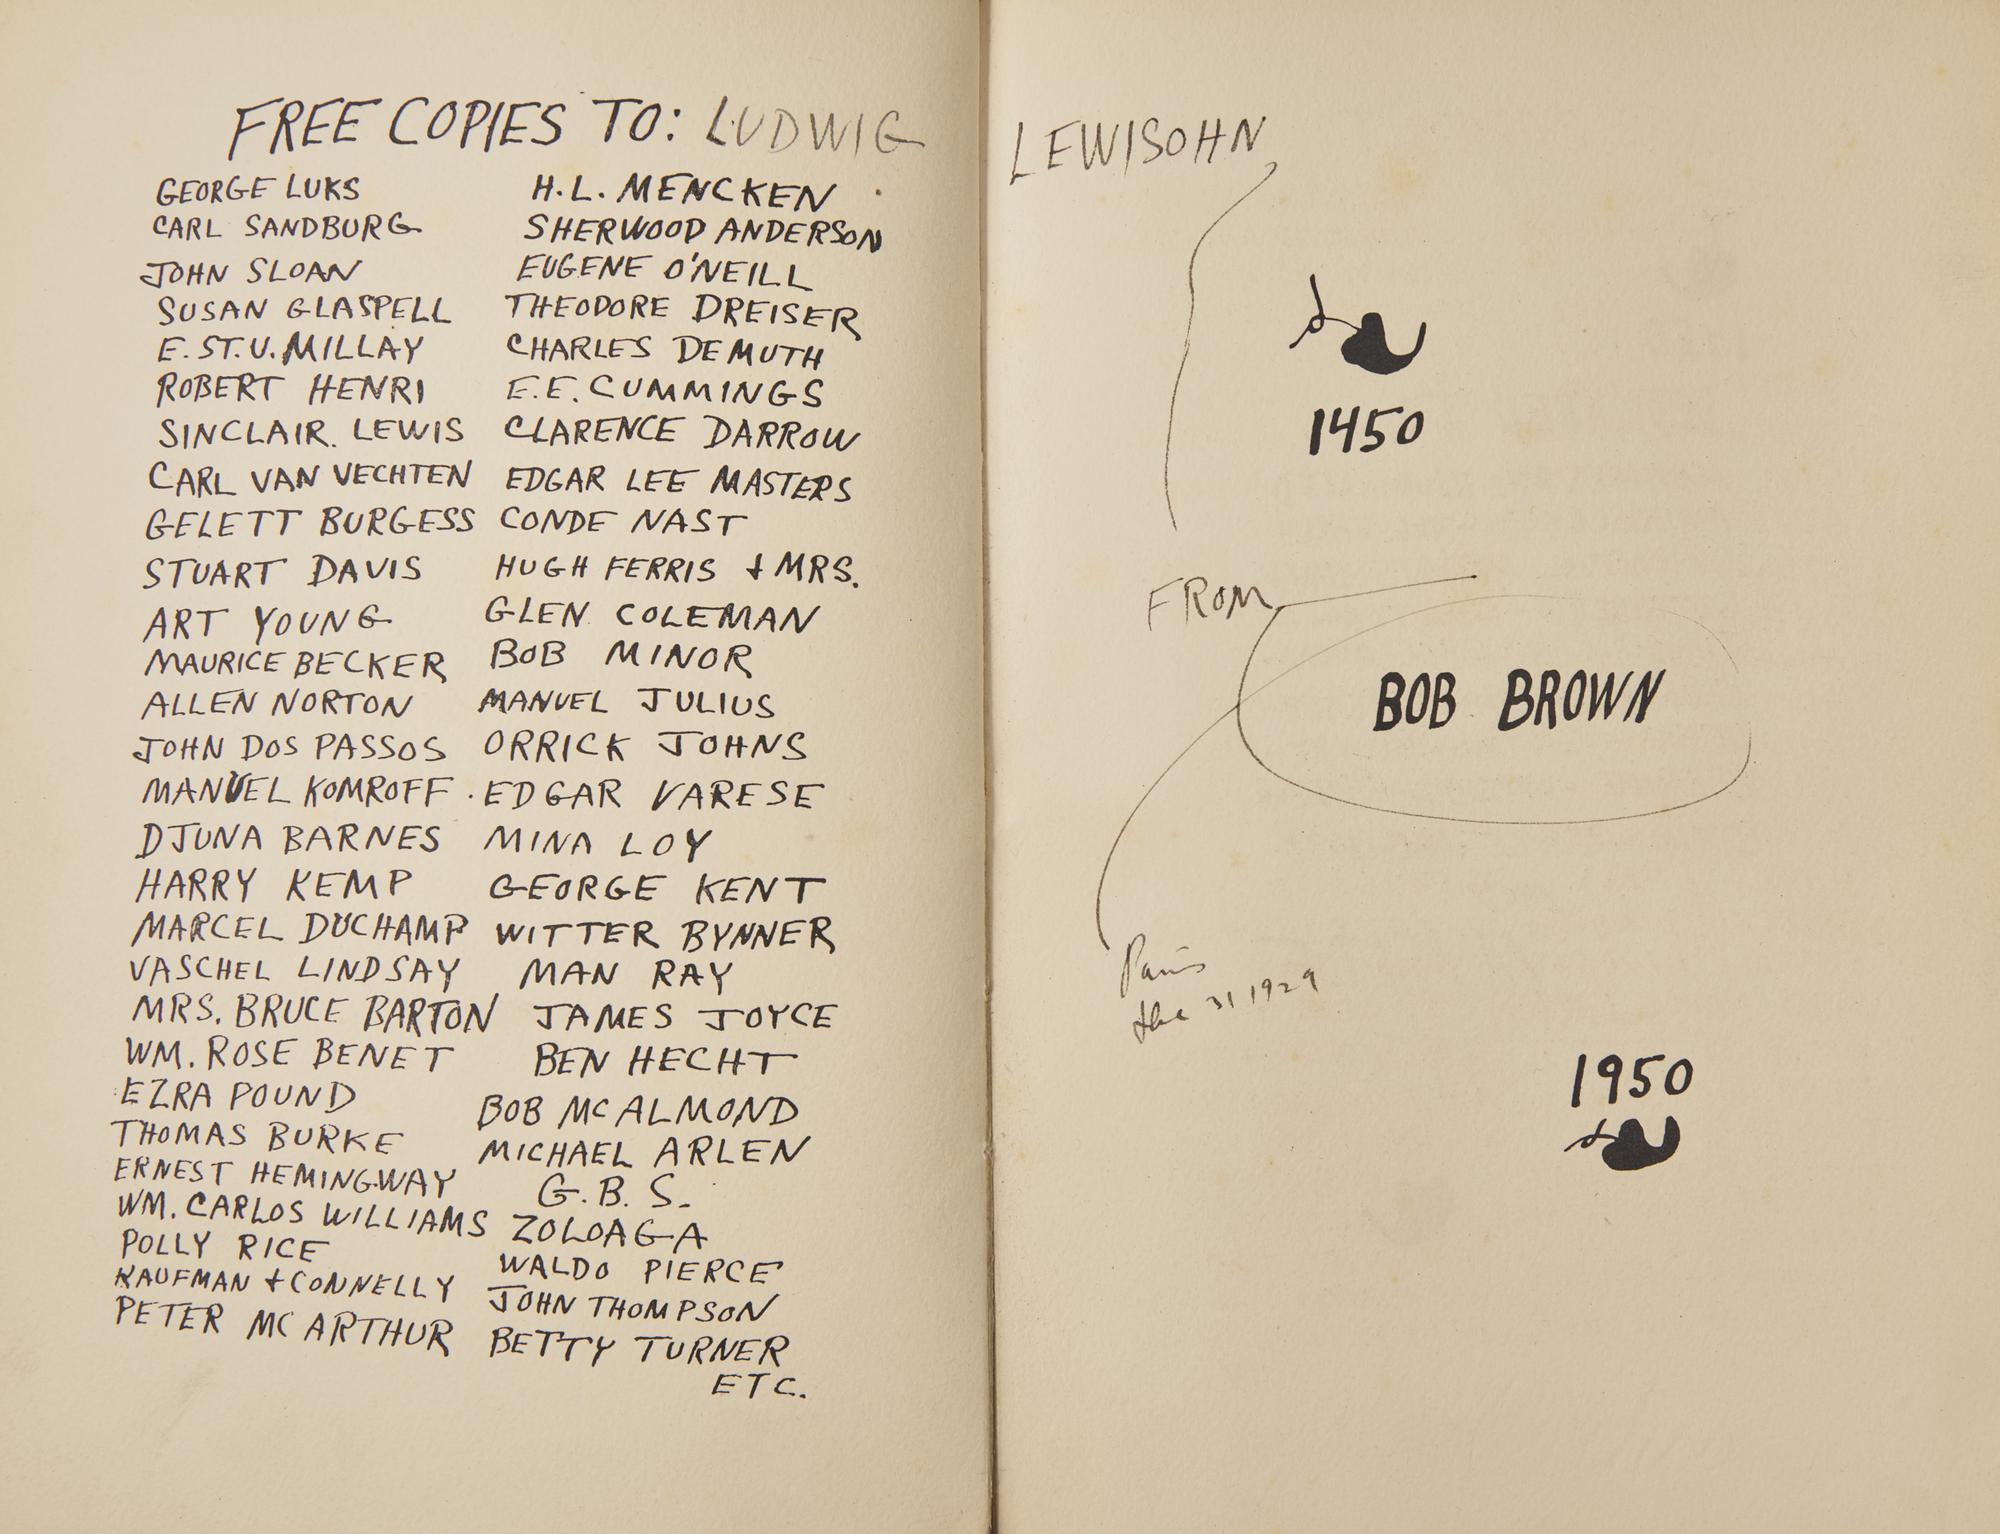 FREE COPIES TO: LUDWIG LEWISOHN
GEORGE LUKS
CARL SANDBURG
JOHN SLOAN
SUSAN GLASPELL
E. ST. V. MILLAY
ROBERT HENRI
SINCLAIR. LEWIS
CARL VAN VECHTEN
GELETT BURGESS
STUART DAVIS
ART YOUNG
MAURICE BECKER
ALLEN NORTON
JOHN DOS PASSOS
MANUEL KOMROFF
DJUNA BARNES
HARRY KEMP
MARCEL DUCHAMP
VASCHEL LINDSAY
MRS. BRUCE BARTON
WM. ROSE BENET
EZRA POUND
THOMAS BURKE
ERNEST HEMINGWAY
WM. CARLOS WILLIAMS
POLLY RICE
KAUFMAN + CONNELLY
PETER MC ARTHUR
H. L. MENCKEN
SHERWOOD ANDERSON
EUGENE O'NEILL
THEODORE DREISER
CHARLES DEMUTH
E. E. CUMMINGS
CLARENCE DARROW
EDGAR LEE MASTERS
CONDE NAST
HUGH FERRIS + MRS.
GLEN COLEMAN
BOB MINOR
MANUEL JULIUS
ORRICK JOHNS
EDGAR VARESE
MINA LOY
GEORGE KENT
WITTER BYNNER
MAN RAY
JAMES JOYCE
BEN HECHT
BOB MC ALMOND
MICHAEL ARLEN
G. B. S.
ZOLOAGA
WALDO PIERCE
JOHN THOMPSON
BETTY TURNER
ETC.
1450
FROM
BOB BROWN
Paris
Dec 31 1929
1950